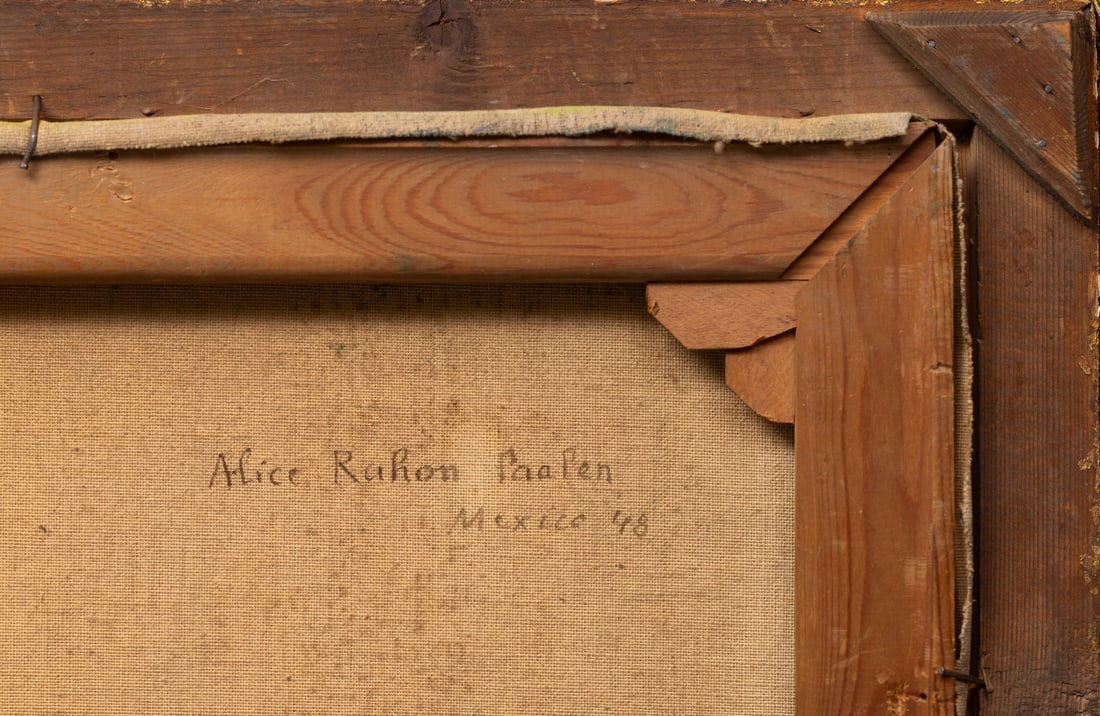 Alice Rahon Paalen
Mexico '48